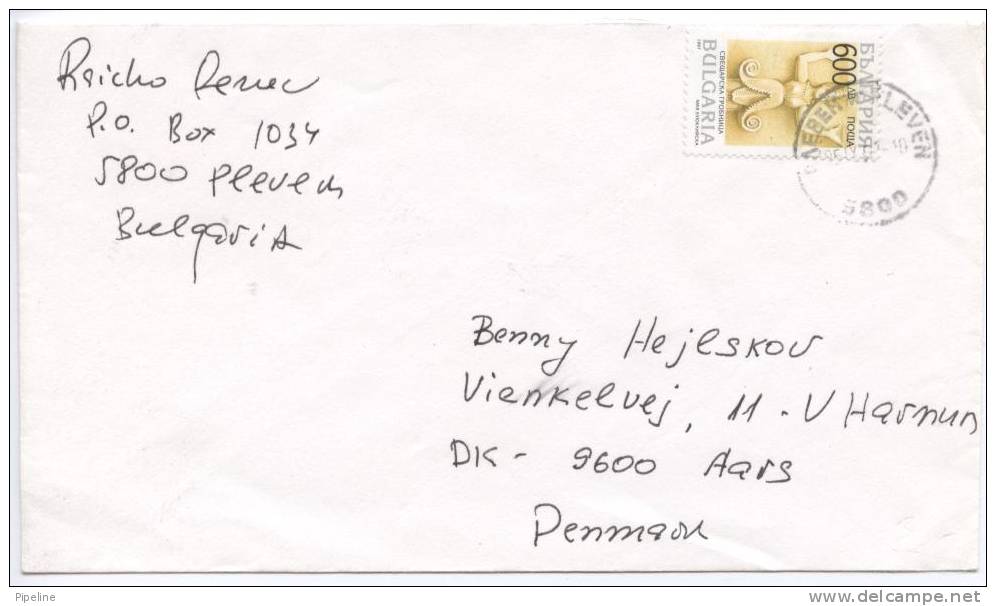 Rsicho Penec
P.O. Box 1034
5800 Pleven
Bulgaria
БЪЛГАРИЯ
ПОЩА
600 ЛВ.
СВЕЩАРСКА ГРОБНИЦА
BULGARIA
1997
ПЛЕВЕН PLEVEN
5800
Benny Hejlskov
Viankelvej, 11 - V Hornum
DK - 9600 Aars
Denmark
Pipeline
delcampe.net